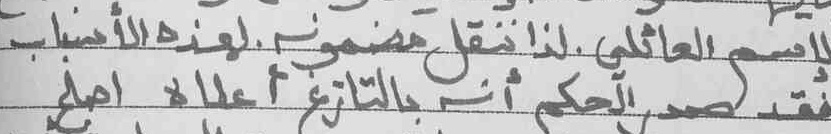 للاسم العائلي. لذا ننقل مضمونه. لهذه الأسباب
فقد صدر الحكم أنه بالتاريخ أعلاه اصلح